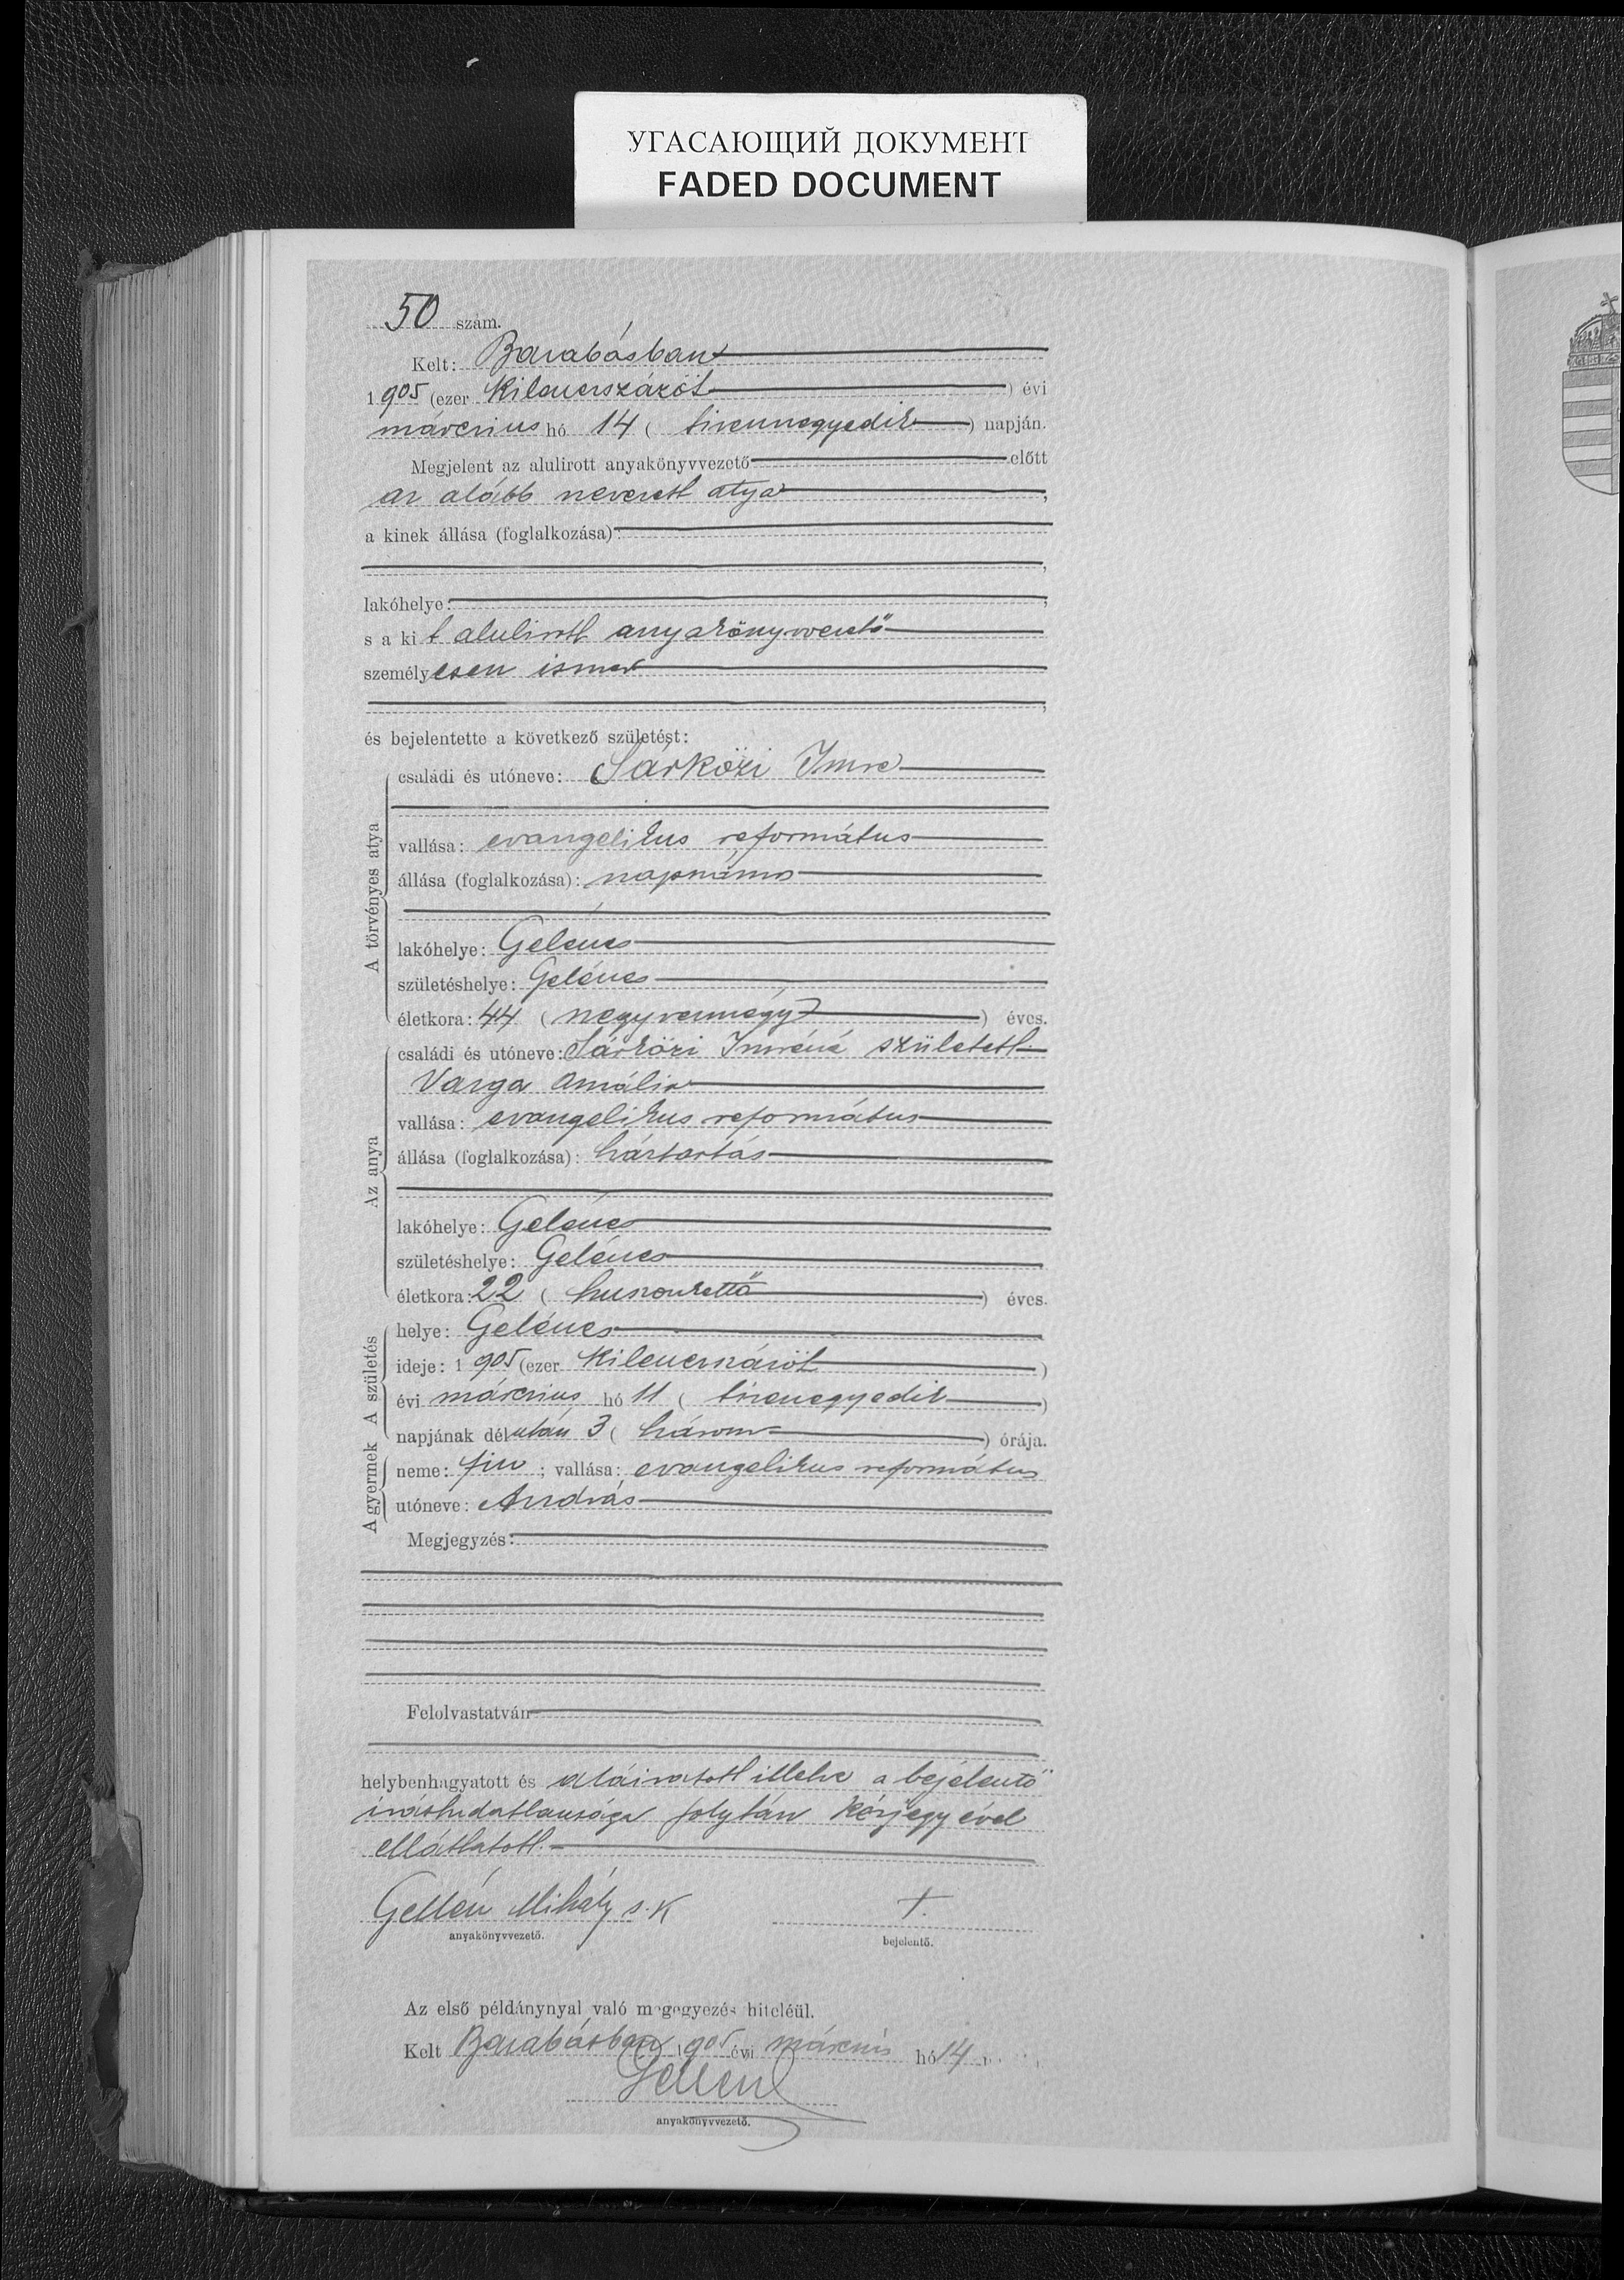 УГАСАЮЩИЙ ДОКУМЕНТ
FADED DOCUMENT
50 szám.
Kelt: Barabásban
1905 (ezer kilenczszázöt) évi
márczius hó 14 ( tizennegyedik ) napján.
Megjelent az alulirott anyakönyvvezető előtt
az alább nevezett atya,
a kinek állása (foglalkozása):
lakóhelye:
s a kit alulirott anyakönyvvezető
személyesen ismer
és bejelentette a következő születést:
A törvényes atya
családi és utóneve: Sárközi Imre
vallása: evangelikus református
állása (foglalkozása): napszámos
lakóhelye: Gelénes
születéshelye: Gelénes
életkora: 44 ( negyvennégy ) éves.
Az anya
családi és utóneve: Sárközi Imréné született
Varga Amália
vallása: evangelikus református
állása (foglalkozása): háztartás
lakóhelye: Gelénes
születéshelye: Gelénes
életkora: 22 ( huszonkettő ) éves.
A születés
helye: Gelénes
ideje: 1905 (ezer kilenczszázöt )
évi márczius hó 11 ( tizenegyedik )
napjának délután 3 ( három ) órája.
A gyermek
neme: fiu ; vallása: evangelikus református
utóneve: András
Megjegyzés:
Felolvastatván
helybenhagyatott és aláiratott illetve a bejelentő
irástudatlansága folytán kézjegyével
elláttatott.
Gellén Mihály s.k +
anyakönyvvezető. bejelentő.
Az első példánynyal való megegyezés hiteléül.
Kelt Barabásban 1905 évi márczius hó 14
Gellén
anyakönyvvezető.